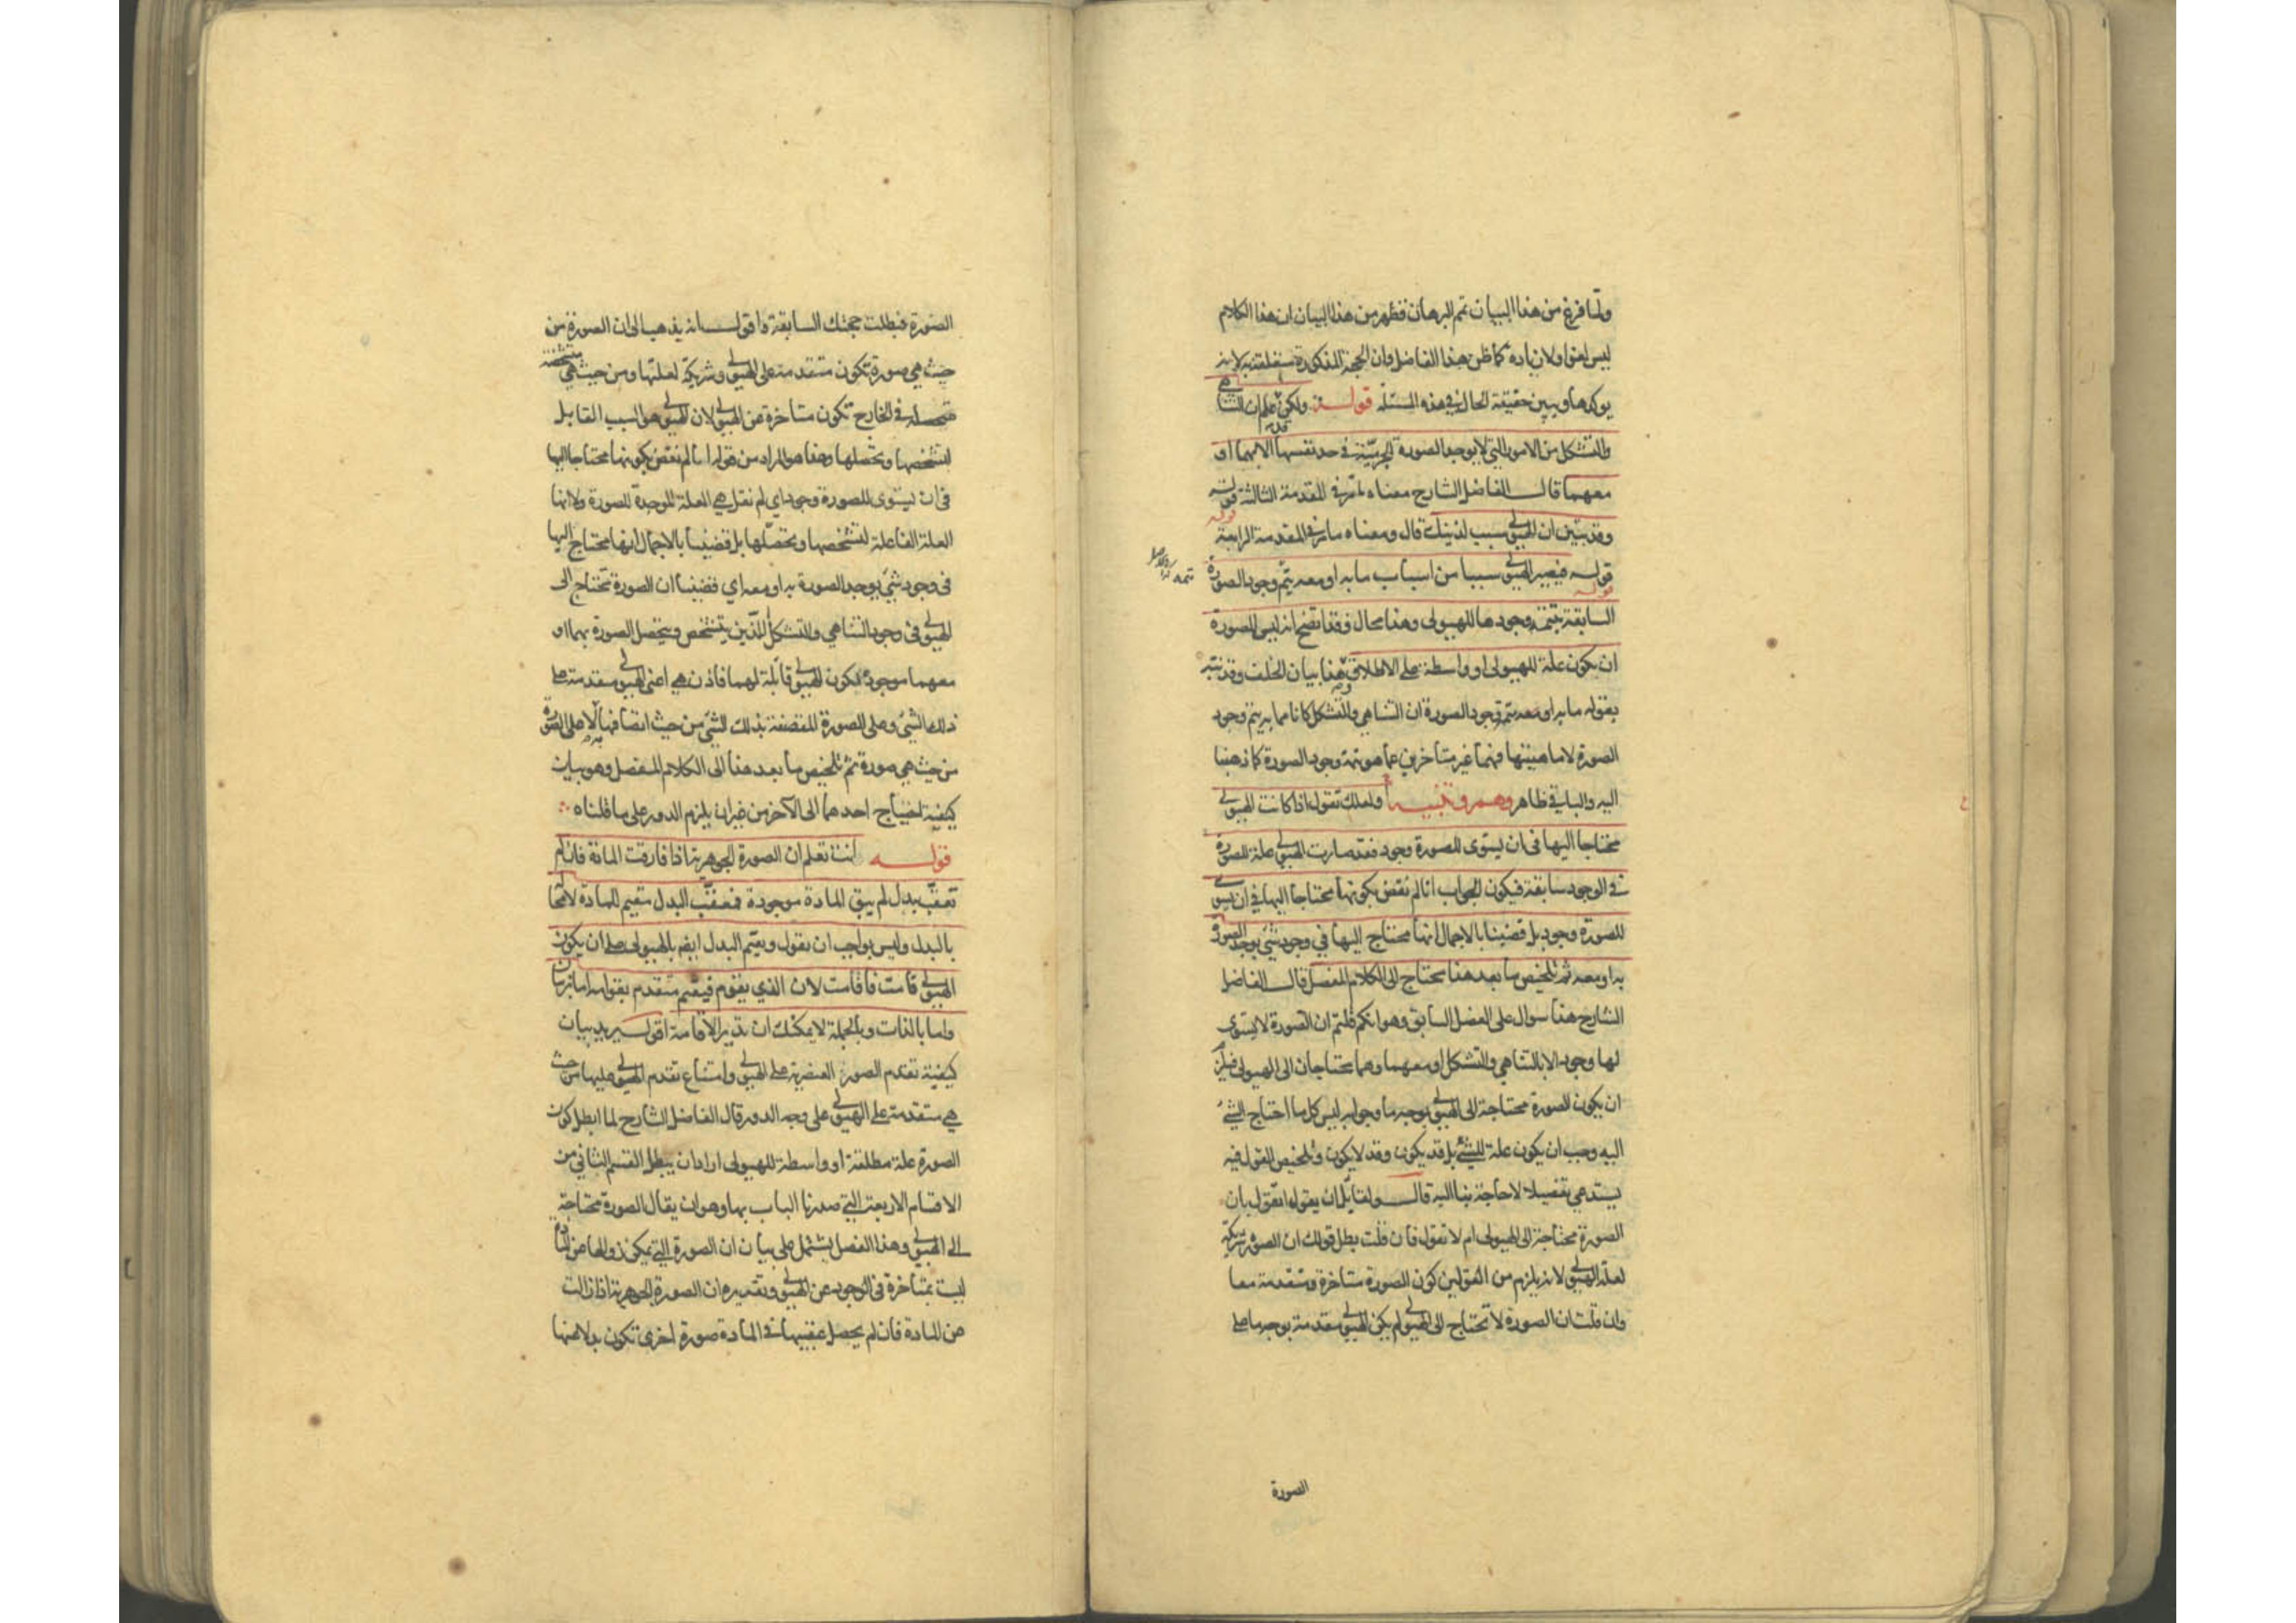 ولما فرغ من هذا البيان تم البرهان فظهر من هذا البيان ان هذا الكلام
ليس لغوا ولا زيادة كما ظن هذا الفاضل وان الحجة المذكورة متعلقة به لانه
يوكدها ويبين حقيقة الحال في هذه المسئلة قوله ولكن قد علم ان التناهي
والتشكل من الامور التي لا يوجد الصورة الجرمية في حد نفسها الا بهما او
معهما قال الفاضل الشارح معناه ما مر في المقدمة الثالثة قوله
وقد تبين ان الهيولى سبب لذينك قال ومعناه ما مر في المقدمة الرابعة
قوله فيصير الهيولى سببا من اسباب ما به او معه يتم وجود الصورة
السابقة بتتمة وجودها للهيولى وهذا محال فقد اتضح انه ليس للصورة
ان يكون علة للهيولى او واسطة على الاطلاق هذا بيان الخلف وقد نبه
بقوله ما به او معه يتم وجود الصورة ان التناهي والتشكل كانا مما به يتم وجود
الصورة لا ماهيتها فهما غير متاخرين عما هو تتمة وجود الصورة كما ذهبنا
اليه والباقي ظاهر وهم وتنبيه ولعلك تقول اذا كانت الهيولى
محتاجا اليها في ان يستوى للصورة وجود فقد صارت الهيولى علة للصورة
في الوجود سابقة فيكون الجواب انا لم نقض بكونها محتاجا اليها في ان يستوى
للصورة وجود بل قضينا بالاجمال انها محتاج اليها في وجود شئ يوجد الصورة
به او معه ثم تلخيص ما بعد هذا محتاج الى الكلام المفصل قال الفاضل
الشارح هذا سوال على الفصل السابق وهو انكم قلتم ان الصورة لا يستوى
لها وجود الا بالتناهي والتشكل او معهما وهما محتاجان الى الهيولى فيلزم
ان يكون الصورة محتاجة الى الهيولى بوجه ما وجوابه ليس كل ما احتاج الشئ
اليه وجب ان يكون علة للشئ بل قد يكون وقد لا يكون وتلخيص القول فيه
يستدعي تفصيلا لا حاجة بنا اليه قال ولقائل ان يقول اتقول بان
الصورة محتاجة الى الهيولى ام لا تقول فان قلت بطل قولك ان الصورة شريكة
لعلة الهيولى لانه يلزم من القولين كون الصورة متاخرة ومتقدمة معا
وان قلت ان الصورة لا تحتاج الى الهيولى لم يكن الهيولى متقدمة بوجه ما على
الصورة
الصورة فبطلت حجتك السابقة واقول انه يذهب الى ان الصورة من
حيث هي صورة تكون متقدمة على الهيولى وشريكة لعلتها ومن حيث هي متشخصة
متحصلة في الخارج تكون متاخرة عن الهيولى لان الهيولى هو السبب القابل
لتشخصها وتحصلها وهذا هو المراد من قوله انا لم نقض بكونها محتاجا اليها
في ان يستوى للصورة وجود اي لم نقل هي العلة الموجدة للصورة ولا انها
العلة الفاعلة لتشخصها وتحصلها بل قضينا بالاجمال انها محتاج اليها
في وجود شئ يوجد الصورة به او معه اي قضينا ان الصورة تحتاج الى
الهيولى في وجود التناهي والتشكل اللذين يتشخص ويتحصل الصورة بهما او
معهما موجودة لكون الهيولى قابلة لهما فاذن هي اعني الهيولى متقدمة على
ذلك الشئ وعلى الصورة المتصفة بذلك الشئ من حيث اتصافها به لا على الصورة
من حيث هي صورة ثم تلخيص ما بعد هذا الى الكلام المفصل وهو بيان
كيفية احتياج احدهما الى الآخر من غير ان يلزم الدور على ما قلناه
قوله انت تعلم ان الصورة الجوهرية اذا فارقت المادة فان لم
تعقب بدل لم يبق المادة موجودة فمعقب البدل مقيم للمادة لا محالة
بالبدل وليس بواجب ان يقول ويقيم البدل ايضا بالهيولى على ان يكون
الهيولى قامت فاقامت لان الذي يقوم فيقيم متقدم بقوامه اما بزمان
واما بالذات وبالجملة لا يمكنك ان تدير الاقامة اقول يريد بيان
كيفية تقدم الصور العنصرية على الهيولى وامتناع تقدم الهيولى عليها من حيث
هي متقدمة على الهيولى على وجه الدور قال الفاضل الشارح لما ابطل كون
الصورة علة مطلقة او واسطة للهيولى اراد ان يبطل القسم الثاني من
الاقسام الاربعة التي صدرنا الباب بها وهو ان يقال الصورة محتاجة
الى الهيولى وهذا الفصل يشتمل على بيان ان الصورة التي يمكن زوالها عن المادة
ليست بمتاخرة في الوجود عن الهيولى وتقديره ان الصورة الجوهرية اذا زالت
عن المادة فان لم يحصل عقيبها في المادة صورة اخرى تكون بدلا عنها